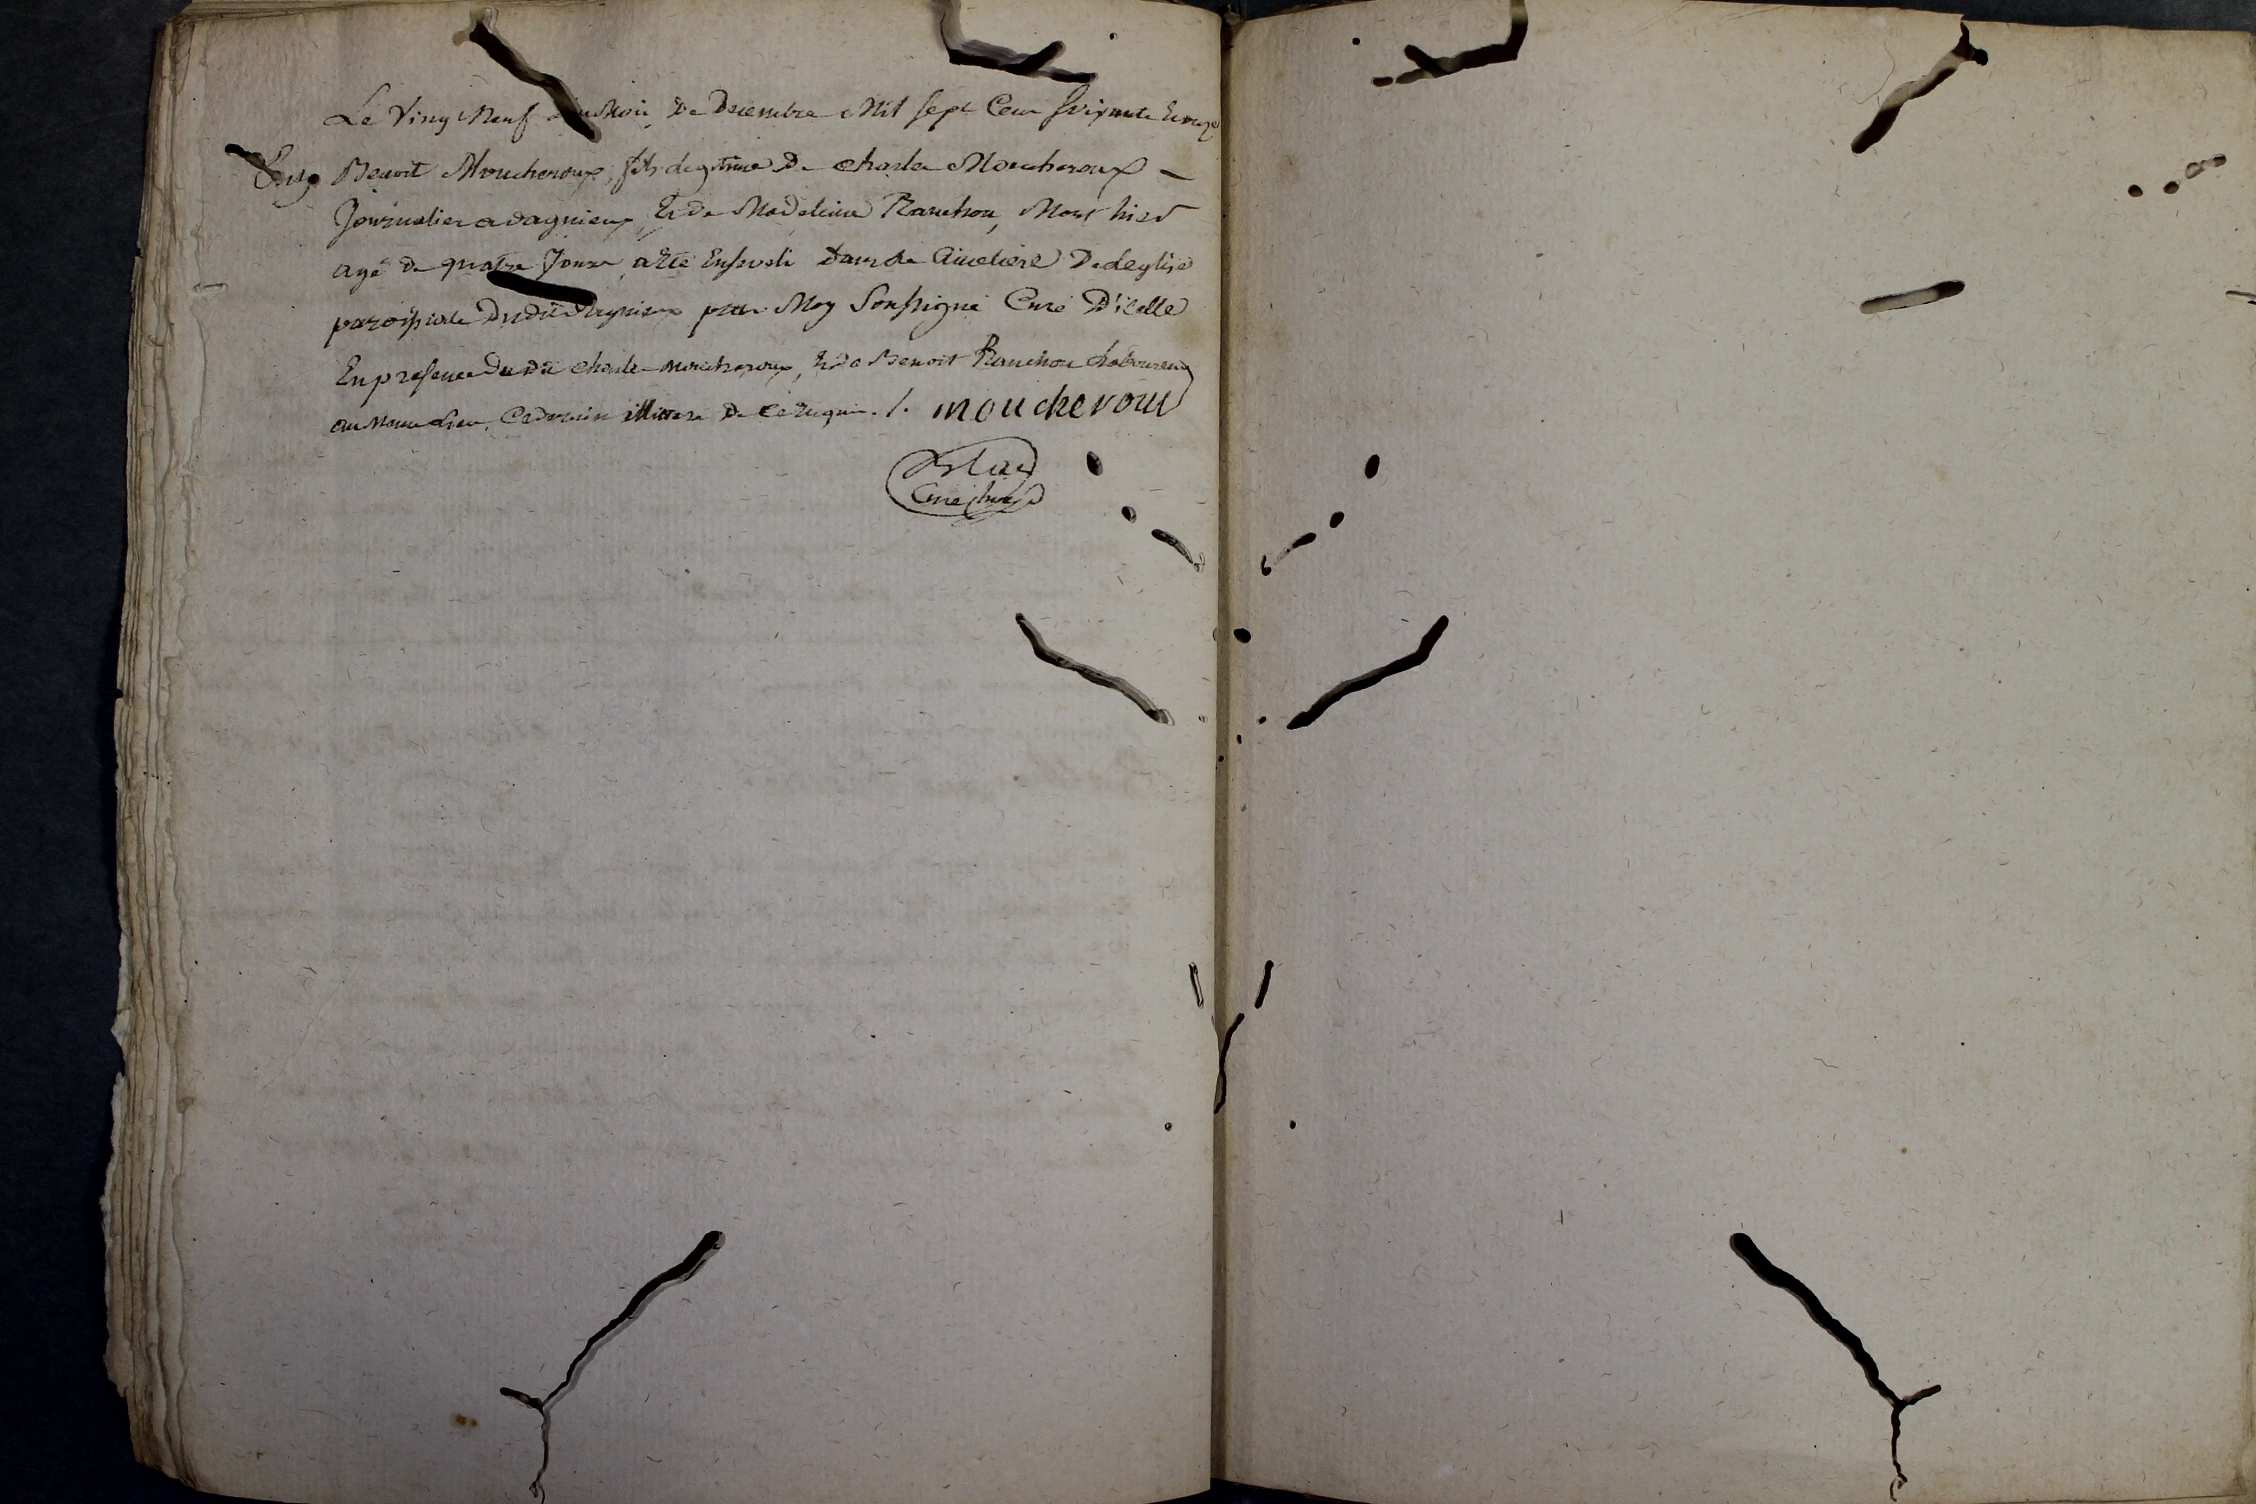 Le Ving Neuf du Mois De Decembre Mil sept Cent soixante Et onze
Benoit Moucheroux, fils legitime De Charle Moucheroux –
Journalier a dagnieux, Et De Madeleine Ranchon, Mort hier
agé De quatre Jours a Eté Enseveli Dans Le Cimetiere De leglise
paroissiale Dudit Dagnieux par Moy Soussigné Curé D'icelle
En presence du dit Charle Moucheroux, Et De Benoit Ranchon Laboureur
au Meme Lieu, Ce dernier illitere De Ce Requis ./. moucheroux
Curé